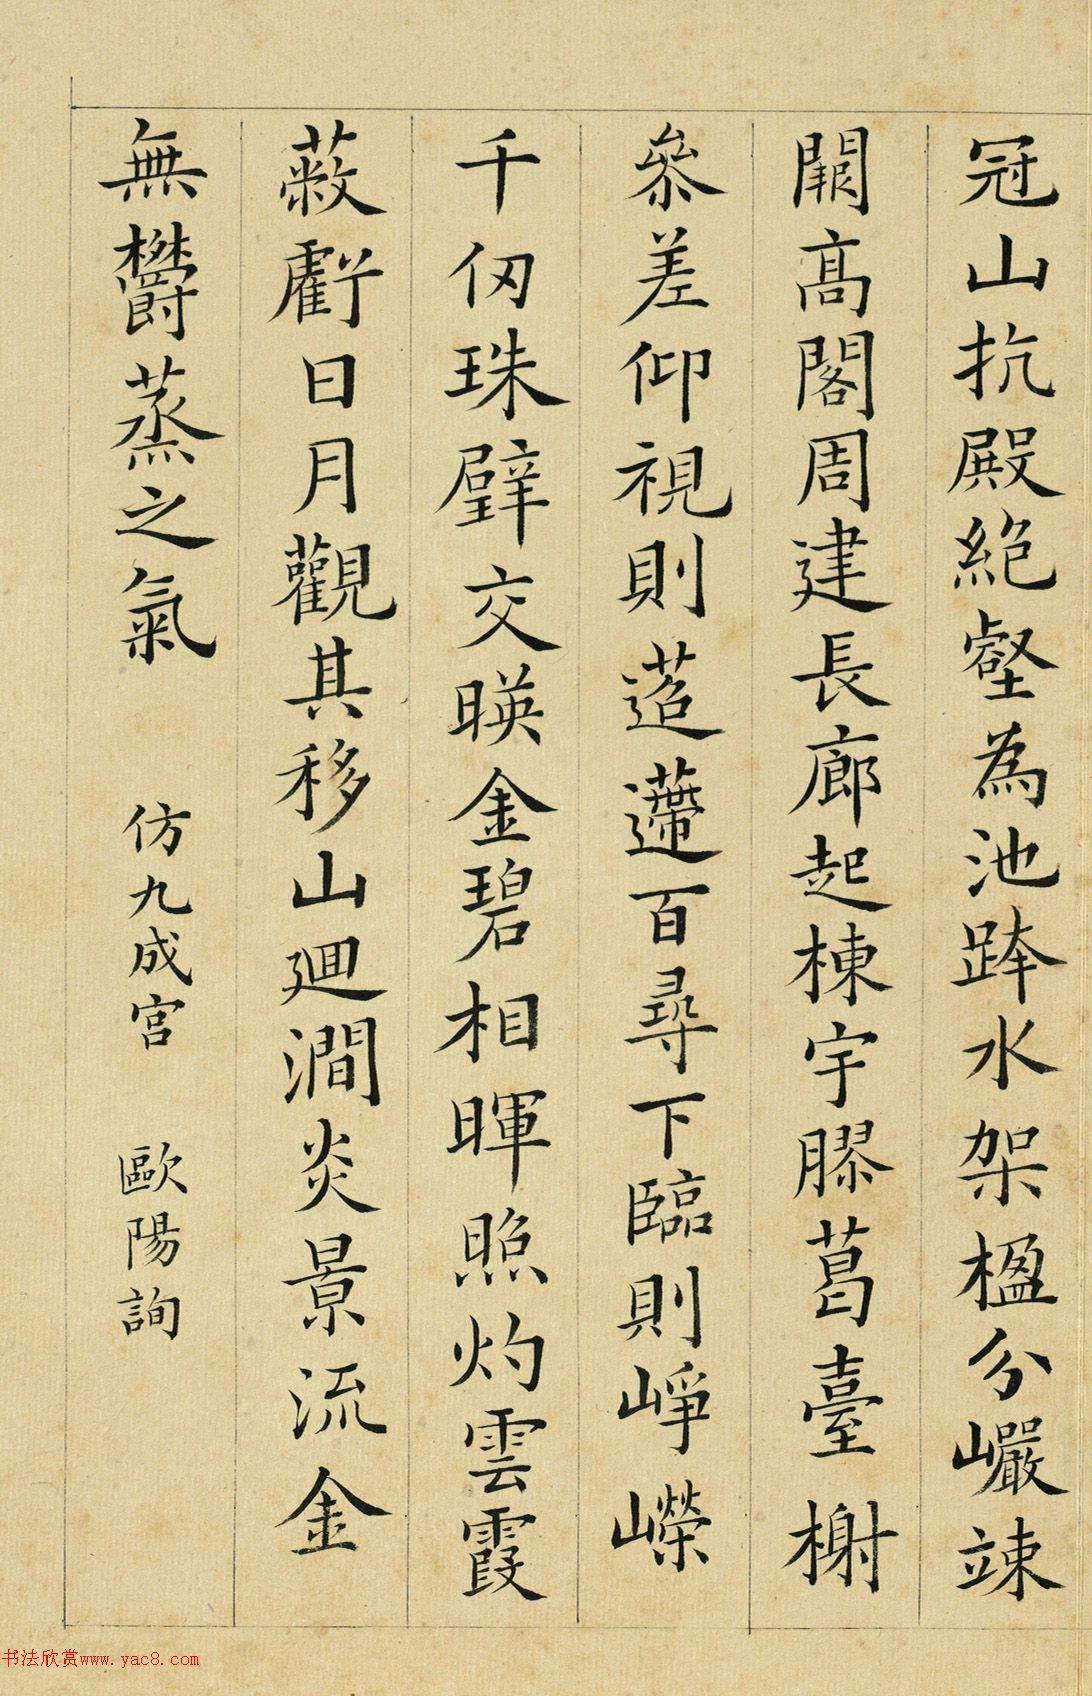 冠山抗殿絕壑為池跨水架楹分巖竦
闕高閣周建長廊起棟宇膠葛臺榭
參差仰視則迢遰百尋下臨則崢嶸
千仞珠璧交暎金碧相暉照灼雲霞
蔽虧日月觀其移山廻澗炎景流金
無欝蒸之氣 仿九成宮 歐陽詢
书法欣赏www.yac8.com